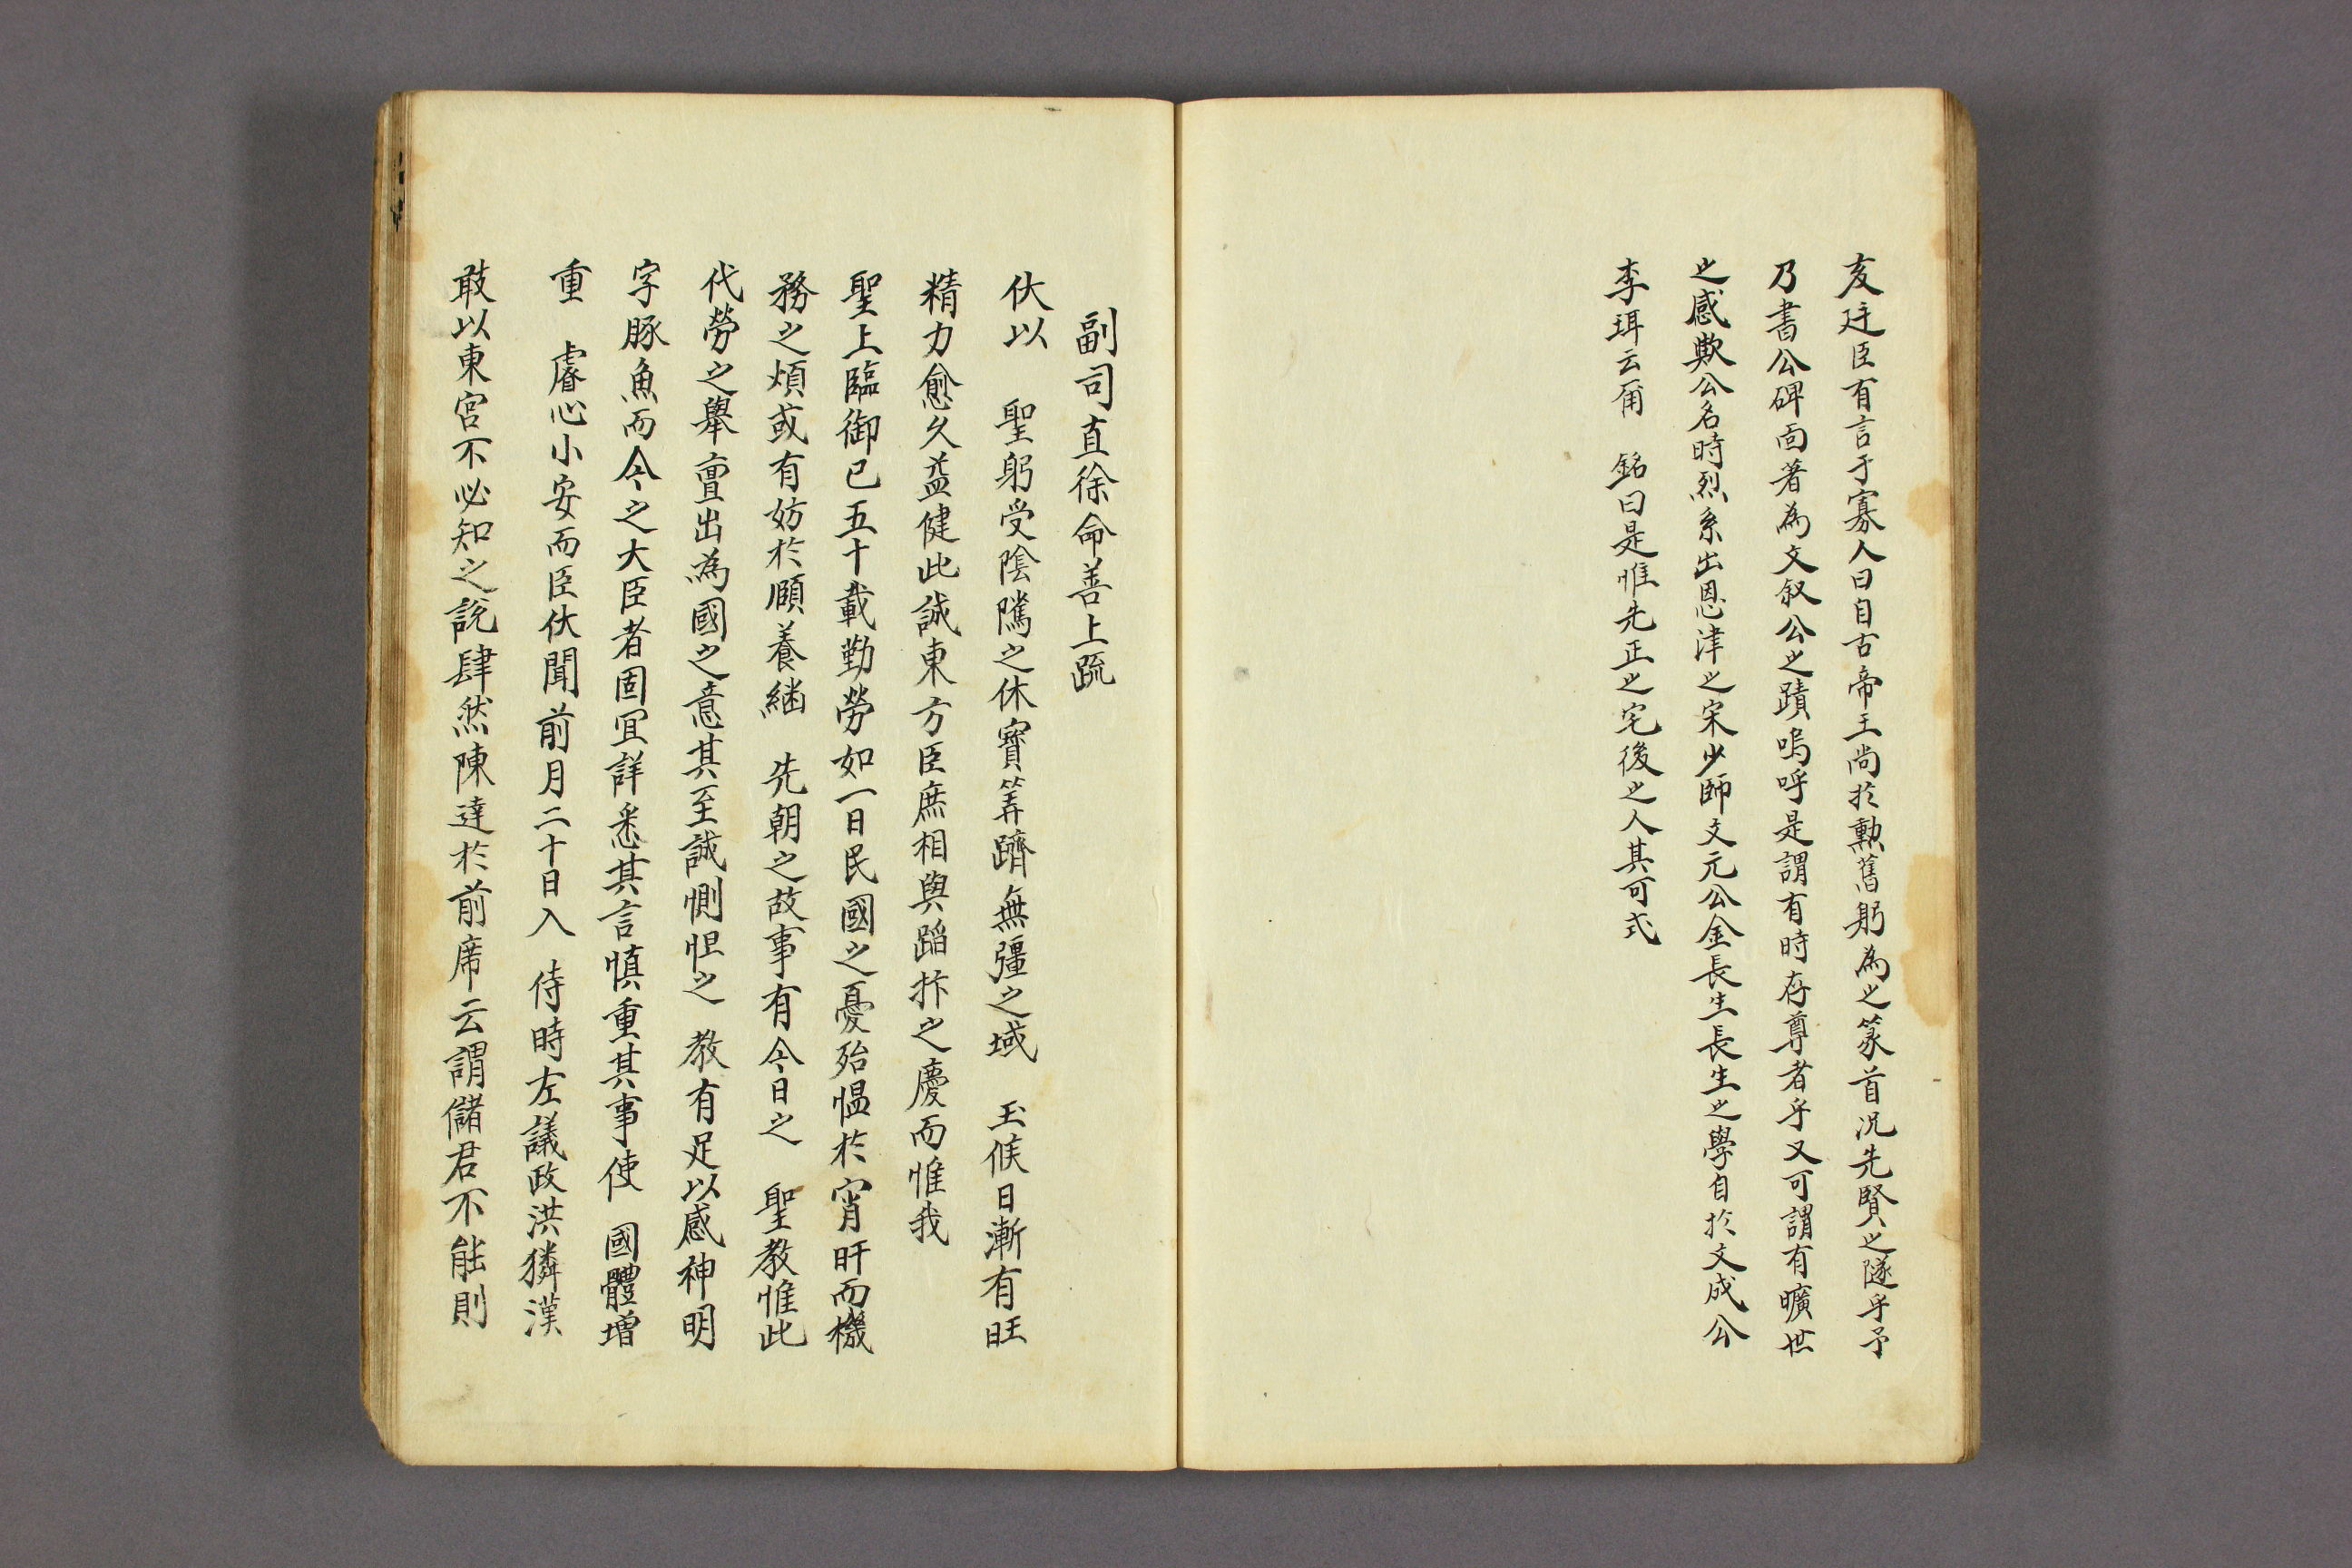 友廷臣有言于寡人曰自古帝王尚於勲舊躬為之篆首况先賢之隧乎予
乃書公碑面著為文叙公之蹟嗚呼是謂有時存尊者乎又可謂有曠世
之感歟公名時烈系出恩津之宋少師文元公金長生長生之學自於文成公
李珥云爾　銘曰是惟先正之宅後之人其可式
副司直徐命善上疏
伏以　聖躬受陰隲之休寶筭躋無彊之域　玉候日漸有旺
精力愈久益健此誠東方臣庶相與蹈抃之慶而惟我
聖上臨御已五十載勤勞如一日民國之憂殆愠於宵旰而機
務之煩或有妨於頤養繼　先朝之故事有今日之　聖教惟此
代勞之舉亶出為國之意其至誠惻怛之　教有足以感神明
孚豚魚而今之大臣者固宜詳悉其言慎重其事使　國體增
重　睿心小安而臣伏聞前月二十日入　侍時左議政洪獜漢
敢以東宮不必知之說肆然陳達於前席云謂儲君不能則